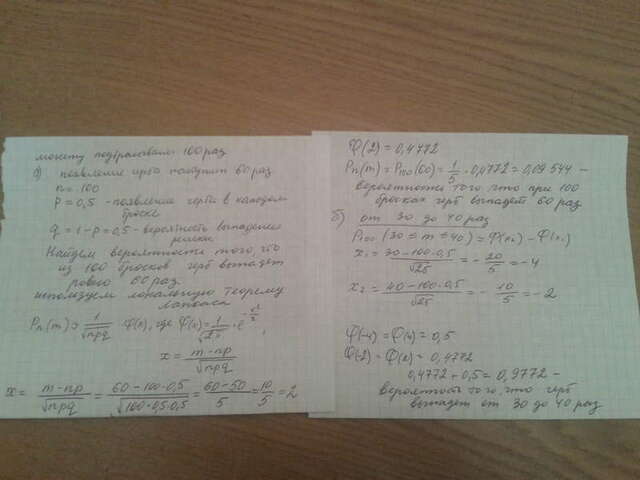 монету подбрасывали 100 раз
а) появление герба наступит 60 раз
n = 100
P = 0,5 - появление герба в каждом
броске
q = 1 - p = 0,5 - вероятность выпадения
решки
Найдем вероятность того, что
из 100 бросков герб выпадет
ровно 60 раз.
используем локальную теорему
Лапласа
Pn(m) ≈ 1/√npq · φ(x), где φ(x) = 1/√2π · e^(-x²/2),
x = (m-np)/√npq
x = (m-np)/√npq = (60-100·0,5)/√(100·0,5·0,5) = (60-50)/5 = 10/5 = 2
φ(2) = 0,4772
Pn(m) = P100(60) = 1/5 · 0,4772 = 0,09544 -
вероятность того, что при 100
бросках герб выпадет 60 раз
б) от 30 до 40 раз
P100 (30 ≤ m ≤ 40) = Ф(x2) - Ф(x1)
x1 = (30-100·0,5)/√25 = - 20/5 = -4
x2 = (40-100·0,5)/√25 = - 10/5 = -2
Ф(-4) = Ф(4) = 0,5
Ф(-2) = Ф(2) = 0,4772
0,4772 + 0,5 = 0,9772 -
вероятность того, что герб
выпадет от 30 до 40 раз